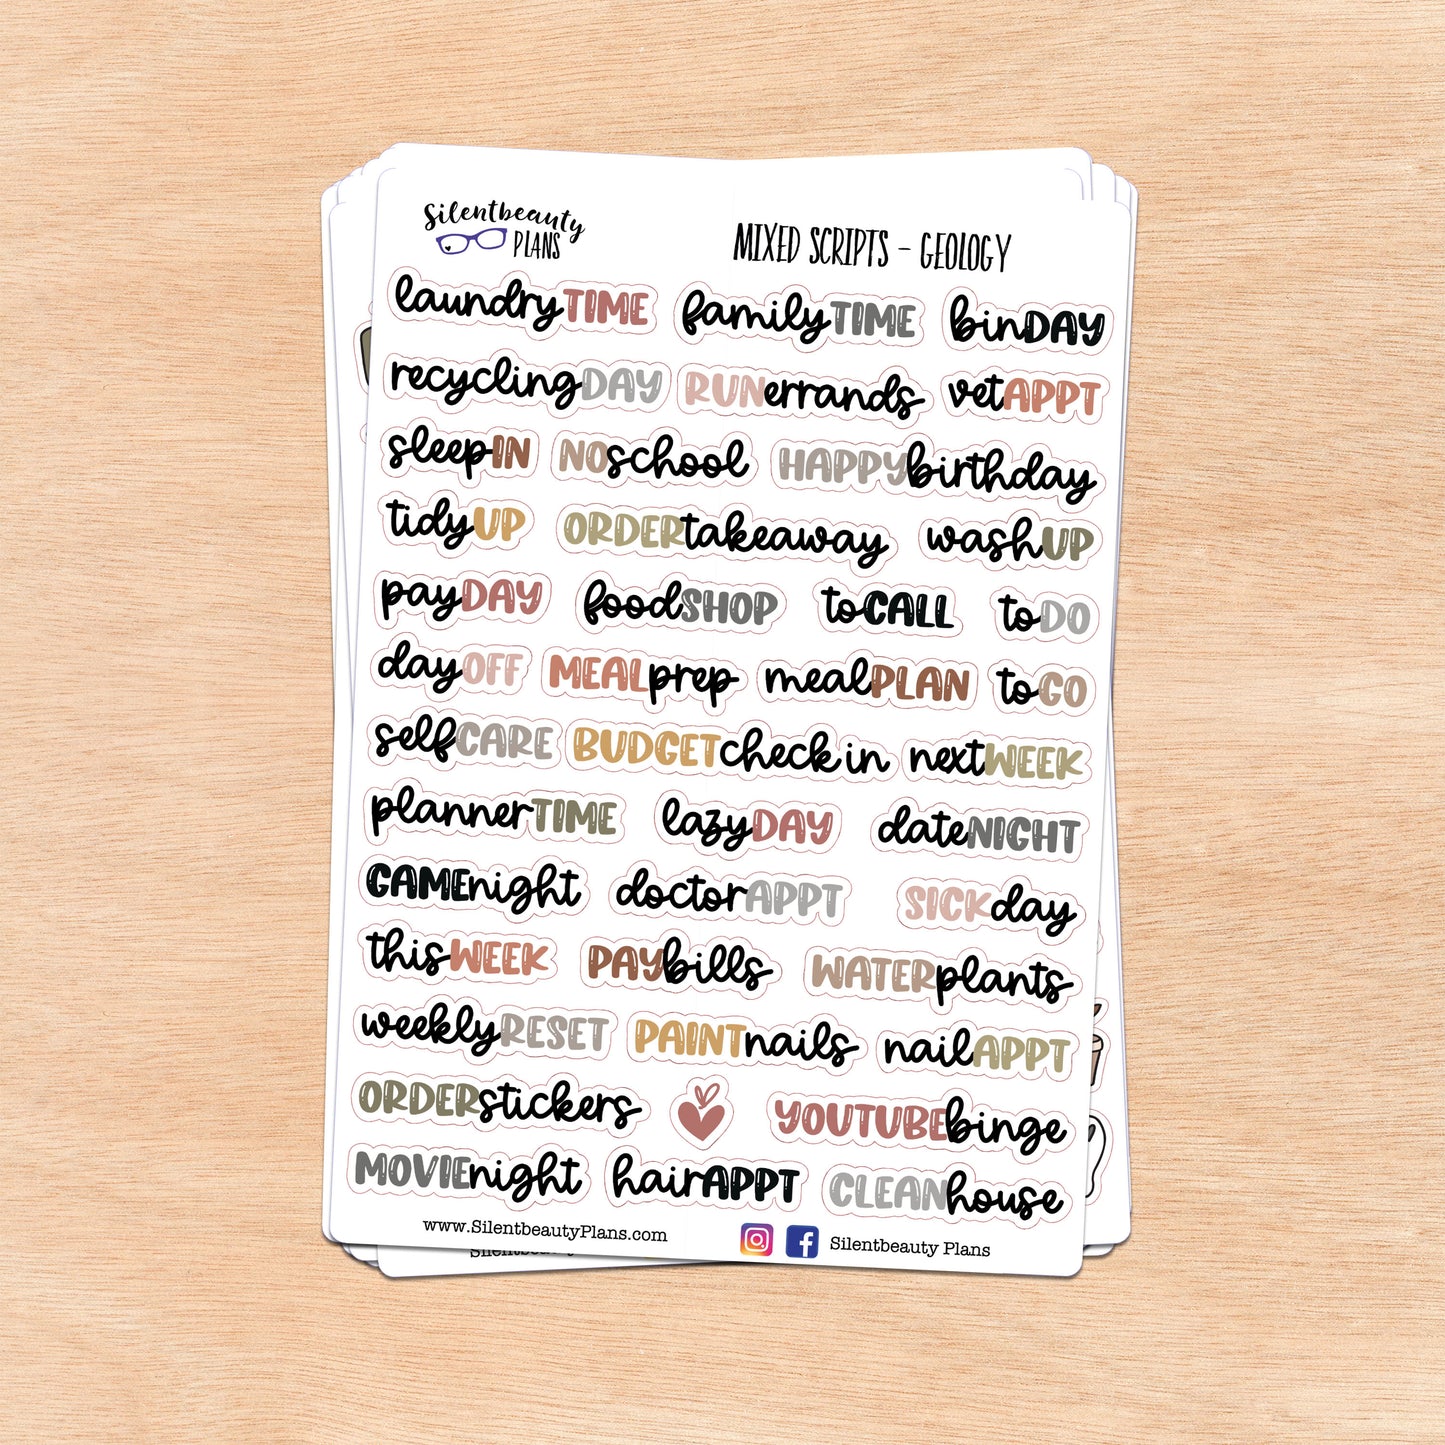 Silentbeauty
PLANS
MIXED SCRIPTS - GEOLOGY
laundryTIME familyTIME binDAY
recyclingDAY RUNerrands vetAPPT
sleepIN NOschool HAPPYbirthday
tidyUP ORDERtakeaway washUP
payDAY foodSHOP toCALL toDO
dayOFF MEALprep mealPLAN toGO
selfCARE BUDGETcheck in nextWEEK
plannerTIME lazyDAY dateNIGHT
GAMEnight doctorAPPT SICKday
thisWEEK PAYbills WATERplants
weeklyRESET PAINTnails nailAPPT
ORDERstickers YOUTUBEbinge
MOVIEnight hairAPPT CLEANhouse
www.SilentbeautyPlans.com Silentbeauty Plans